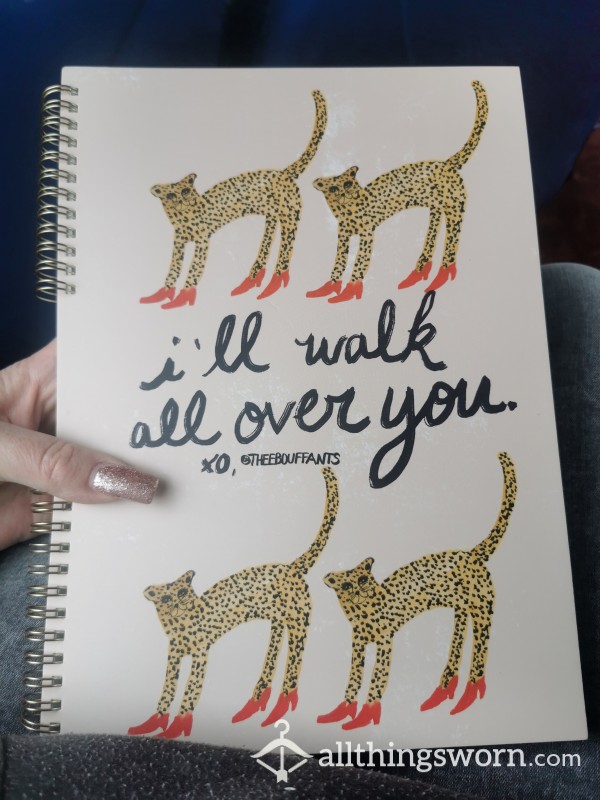 i'll walk
all over you.
xo, @THEEBOUFFANTS
allthingsworn.com